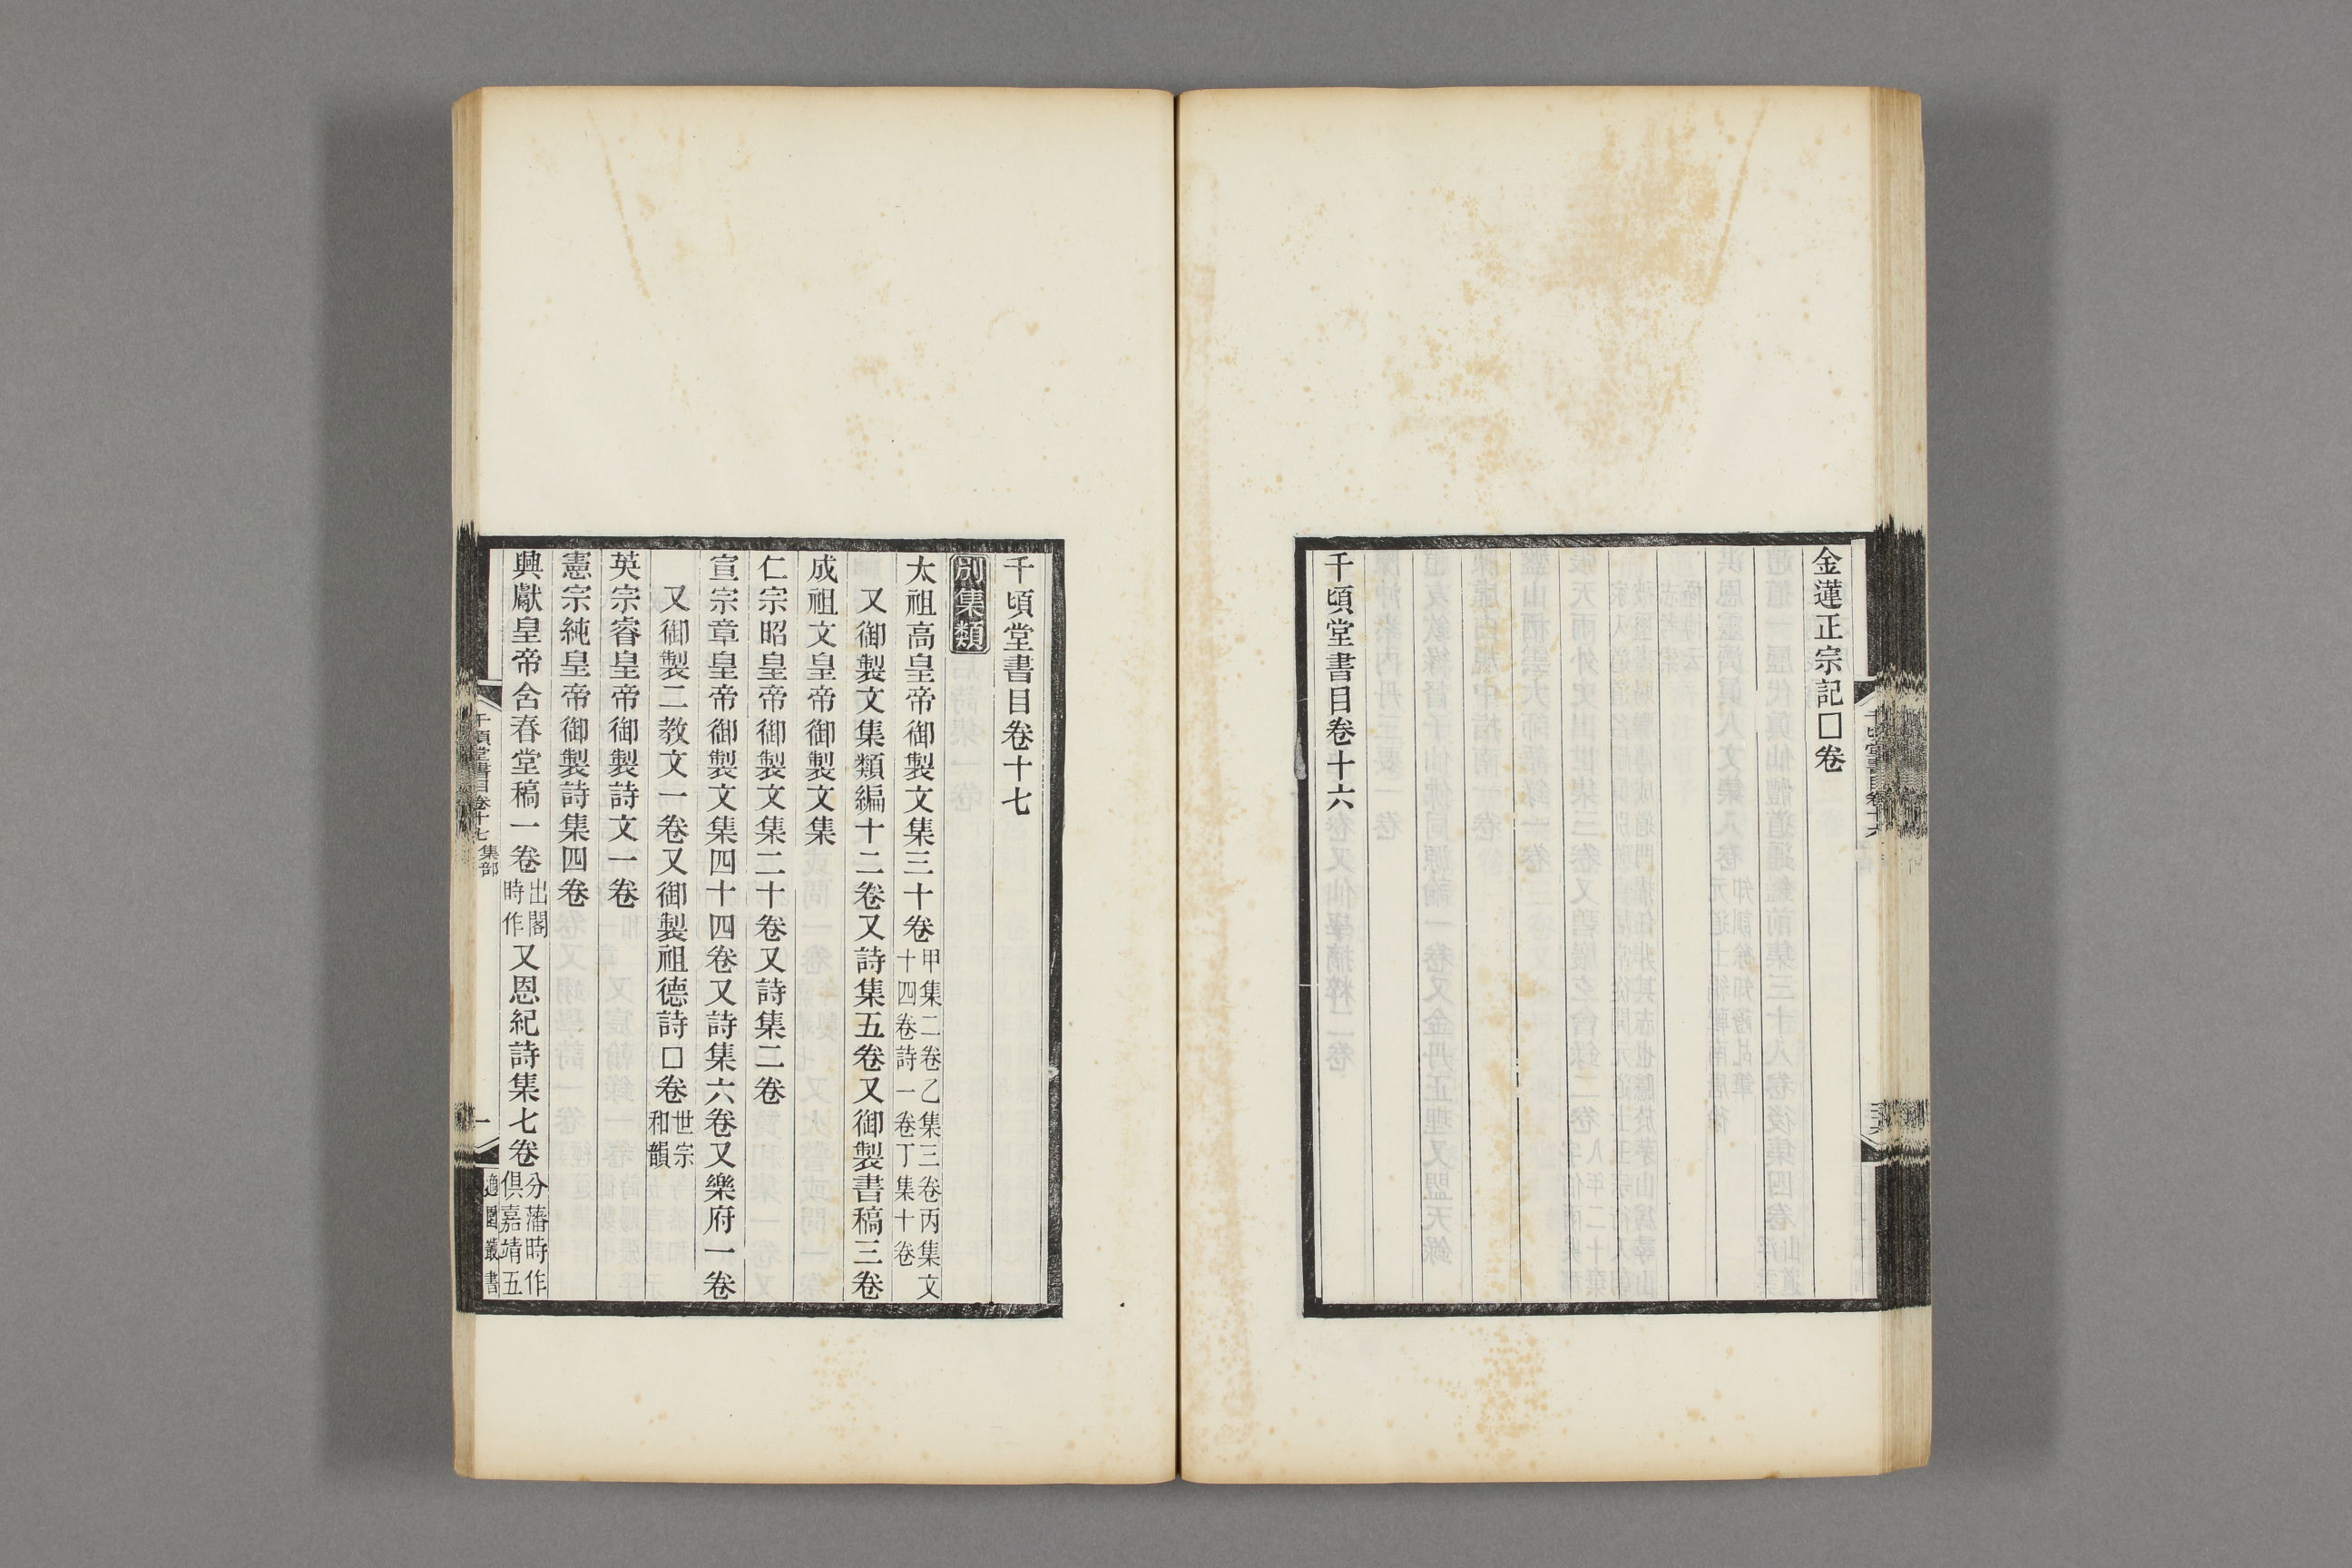 金蓮正宗記□卷
千頃堂書目卷十六
千頃堂書目卷十七
別集類
太祖高皇帝御製文集三十卷甲集二卷乙集三卷丙集文十四卷詩一卷丁集十卷
又御製文集類編十二卷又詩集五卷又御製書稿三卷
成祖文皇帝御製文集
仁宗昭皇帝御製文集二十卷又詩集二卷
宣宗章皇帝御製文集四十四卷又詩集六卷又樂府一卷
又御製二教文一卷又御製祖德詩□卷世宗和韻
英宗睿皇帝御製詩文一卷
憲宗純皇帝御製詩集四卷
興獻皇帝含春堂稿一卷出閣時作又恩紀詩集七卷分藩時作俱嘉靖五
千頃堂書目卷十七 集部
一
適園叢書